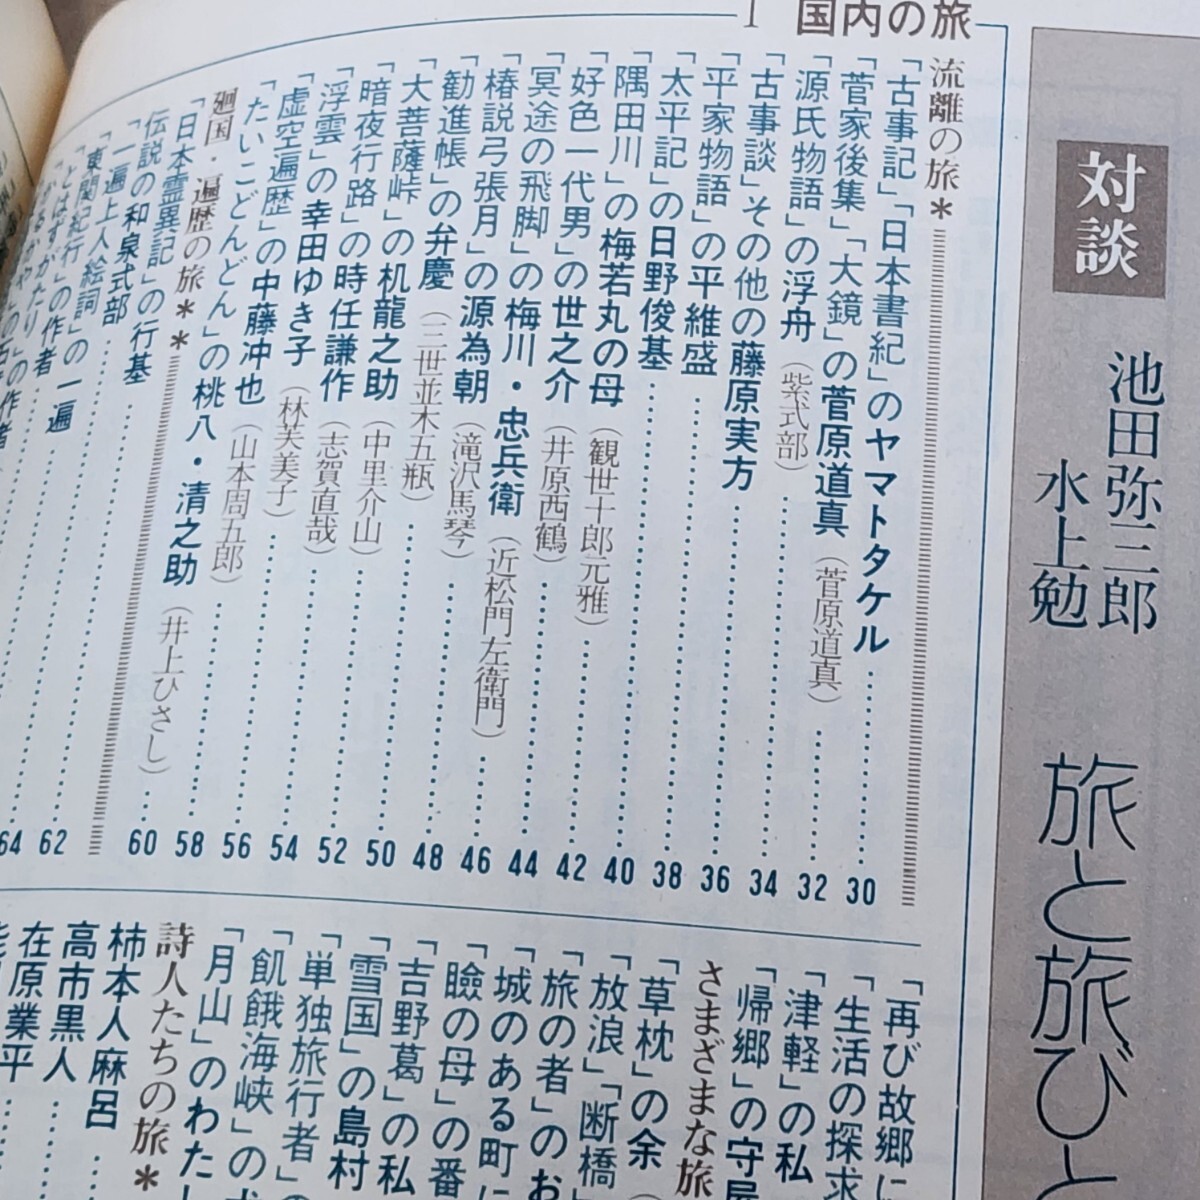 対談
池田弥三郎
水上勉
旅と旅びと
1 国内の旅
流離の旅*
「古事記」「日本書紀」のヤマトタケル……30
「菅家後集」「大鏡」の菅原道真(菅原道真)……32
「源氏物語」の浮舟(紫式部)……34
「古事談」その他の藤原実方……36
「平家物語」の平維盛……38
「太平記」の日野俊基……40
「隅田川」の梅若丸の母(観世十郎元雅)……42
「好色一代男」の世之介(井原西鶴)……44
「冥途の飛脚」の梅川・忠兵衛(近松門左衛門)……46
「椿説弓張月」の源為朝(滝沢馬琴)……48
「勧進帳」の弁慶(三世並木五瓶)……50
「大菩薩峠」の机龍之助(中里介山)……52
「暗夜行路」の時任謙作(志賀直哉)……54
「浮雲」の幸田ゆき子(林芙美子)……56
「虚空遍歴」の中藤冲也(山本周五郎)……58
「たいこどんどん」の桃八・清之助(井上ひさし)……60
廻国・遍歴の旅**
「日本霊異記」の行基……62
伝説の和泉式部……64
「一遍上人絵詞」の一遍
「東関紀行」の作者
「とはずがたり」の作者
「再び故郷に
「生活の探求
「津軽」の私
「帰郷」の守屋
さまざまな旅
「草枕」の余(
「放浪」「断橋」
「旅の者」のお
「城のある町に
「瞼の母」の番
「吉野葛」の私
「雪国」の島村
「単独旅行者」の
「飢餓海峡」の犬
「月山」のわたし
詩人たちの旅*
柿本人麻呂……
高市黒人……
在原業平……